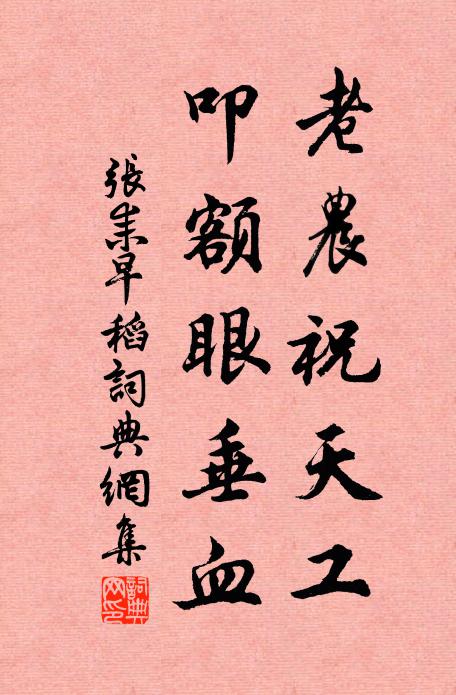 老農祝天工
叩額眼垂血
張耒早稻詞典網集
詞典網印